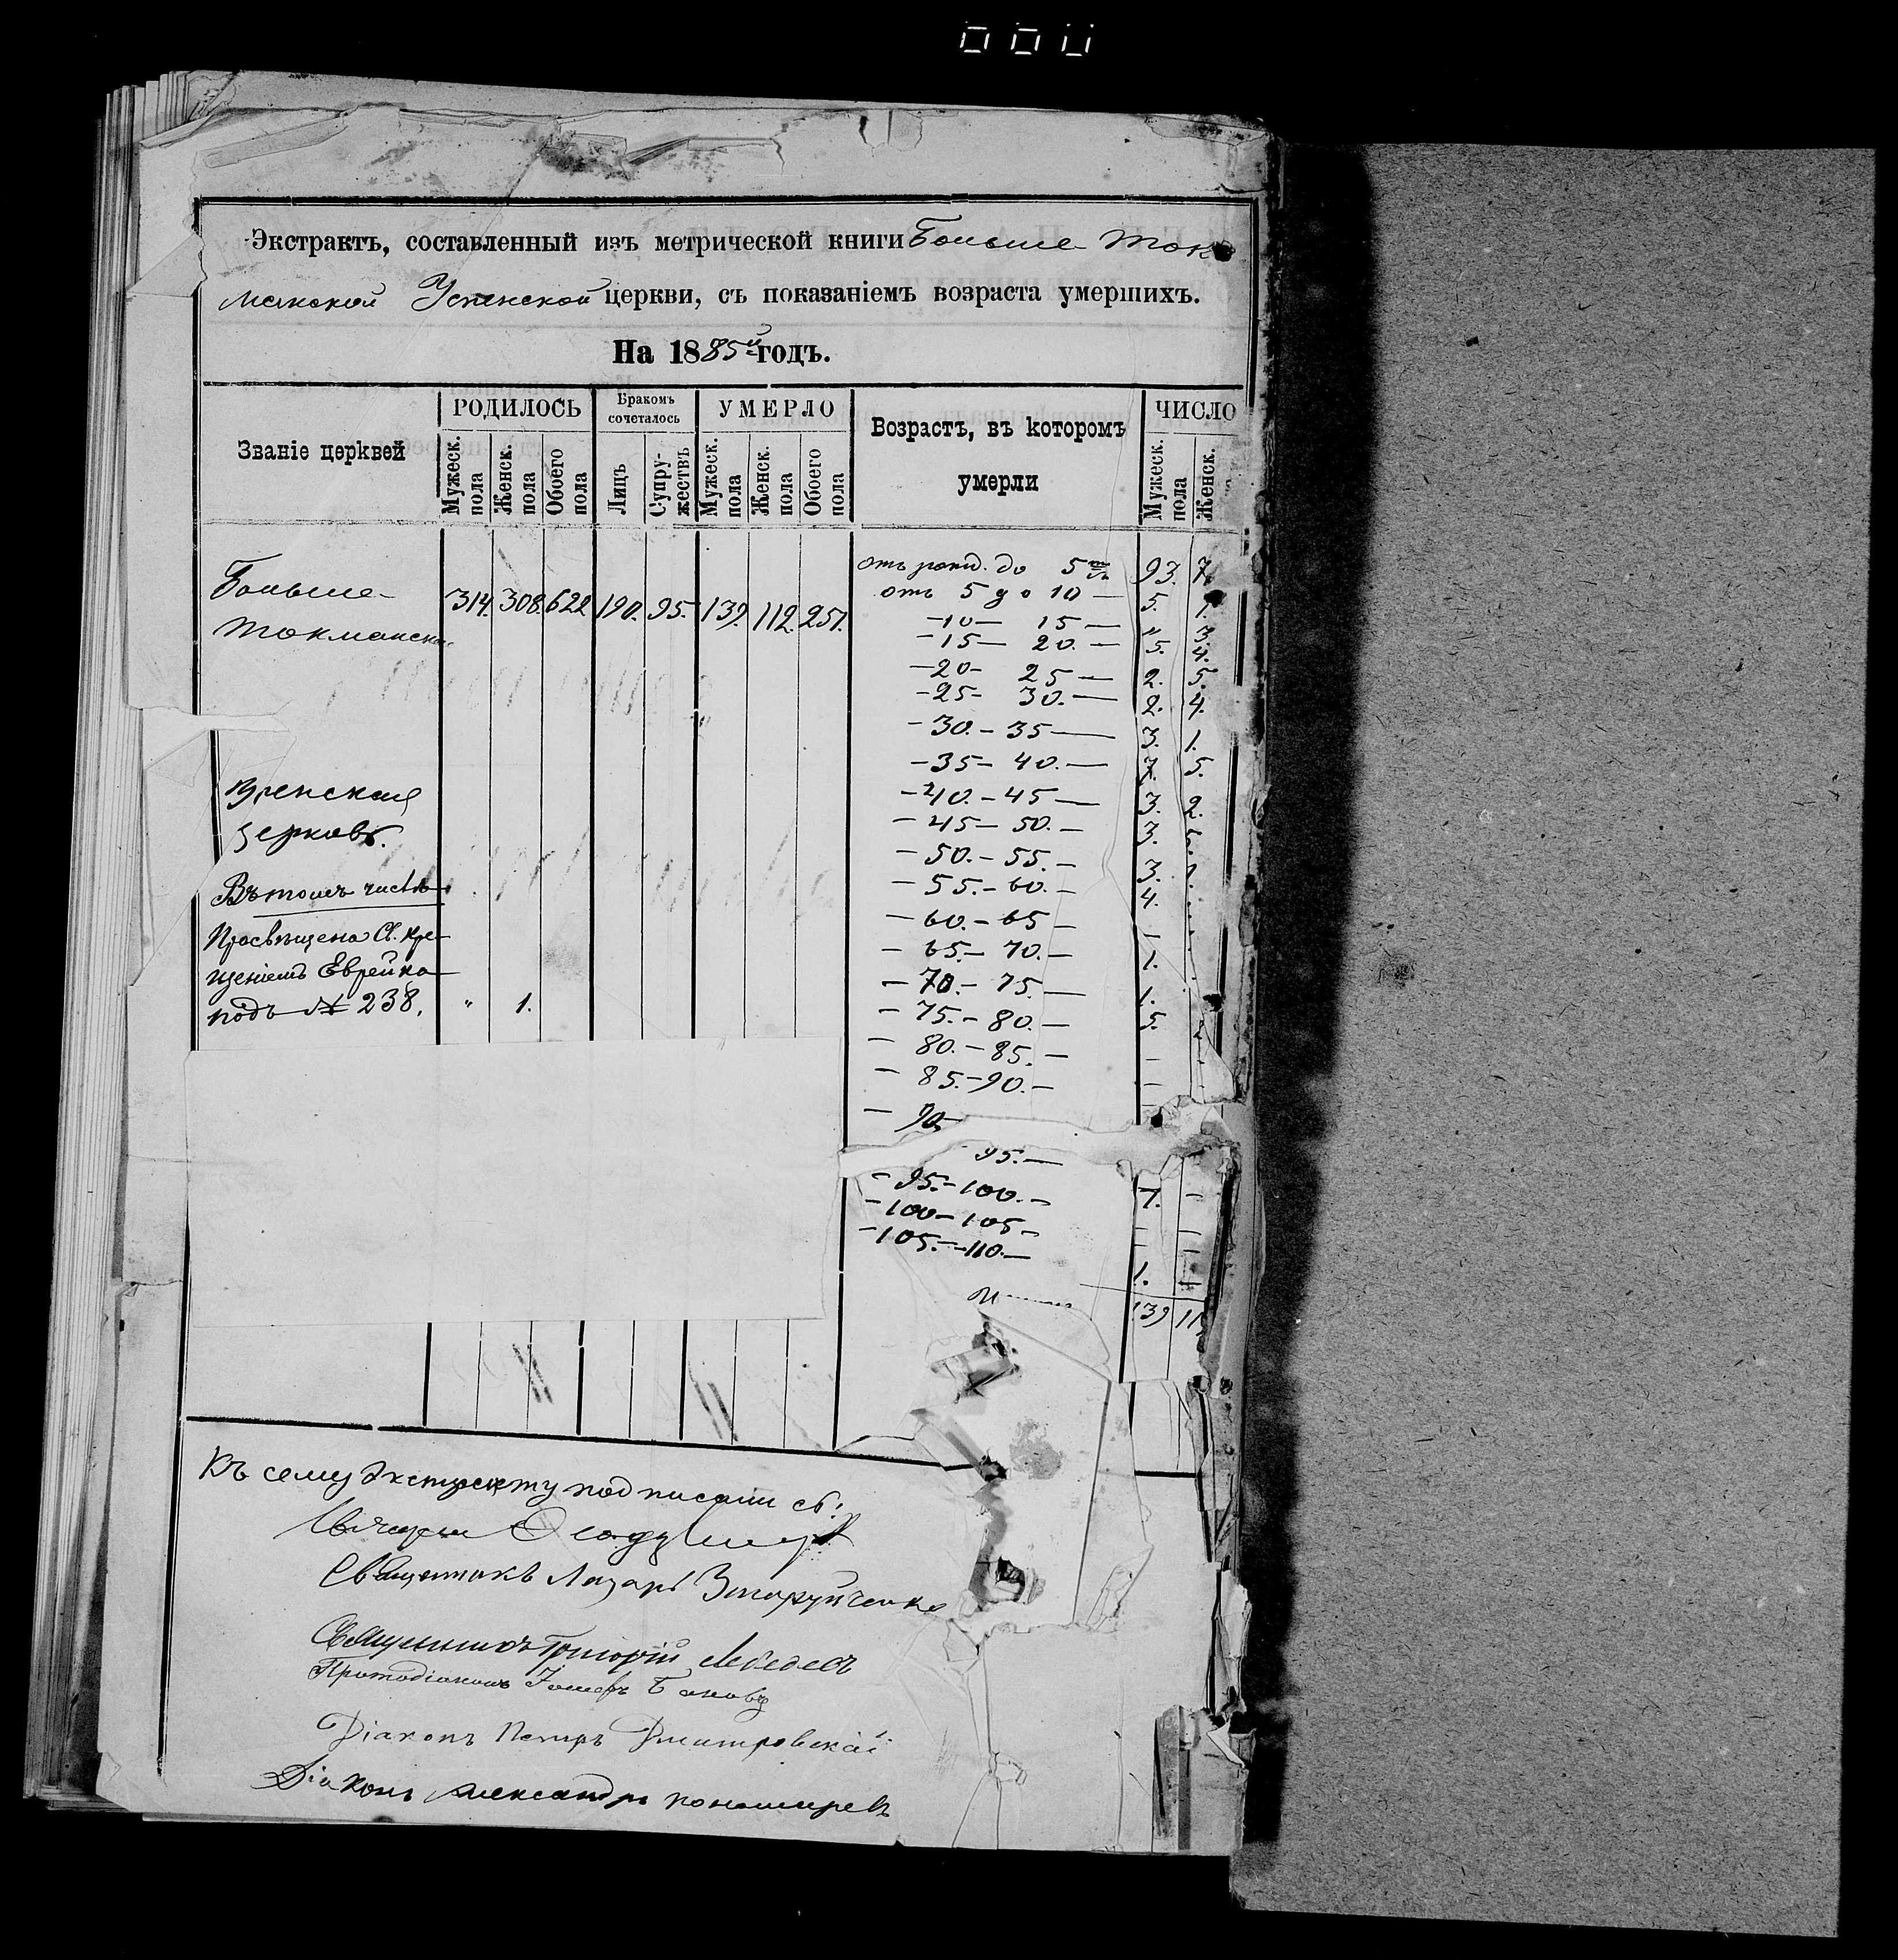 Экстрактъ, составленный изъ метрической книги Больше Ток
макской Успенской церкви, съ показаніемъ возраста умершихъ.
На 1885й годъ.
Званіе церквей
РОДИЛОСЬ
Мужеск. пола
Женск. пола
Обоего пола
Бракомъ сочеталось
Лицъ
Супружествъ
УМЕРЛО
Мужеск. пола
Женск. пола
Обоего пола
Возрастъ, въ которомъ
умерли
ЧИСЛО
Мужеск. пола
Женск.
Больше-
Токмакска
314. 308. 622 190. 95. 139. 112. 251.
церковь.
Въ томъ числѣ
Просвѣщена Св. Кре-
щеніемъ Еврейка
подъ № 238. " 1.
отъ рожд. до 5 93. 7
отъ 5 до 10 — 5. 1.
—10— 15 — " 3.
—15— 20. — 5. 4.
—20— 25 — 2. 5.
—25— 30. — 2. 4.
—30.— 35 — 3. 1.
—35— 40. — 7. 5.
—40.—45 — 3. 2.
—45— 50. — 3. 5.
—50.—55. — 3. 1.
—55.—60. — 4.
—60.—65 — —
—65.—70. — 1.
—70.—75. — 1.
—75.—80. — 5.
—80.—85. — — —
—85.—90. — —
—90.—
95.—
—95.—100. —
—100—105 —
—105.—110. —
1. —
139 11
Къ сему экстракту подписались:
Священникъ Лазарь
Священникъ Григорій Лебедевъ
Протодіаконъ Іосифъ Баковъ
Діаконъ Петръ Дмитровскій
Діаконъ Александръ